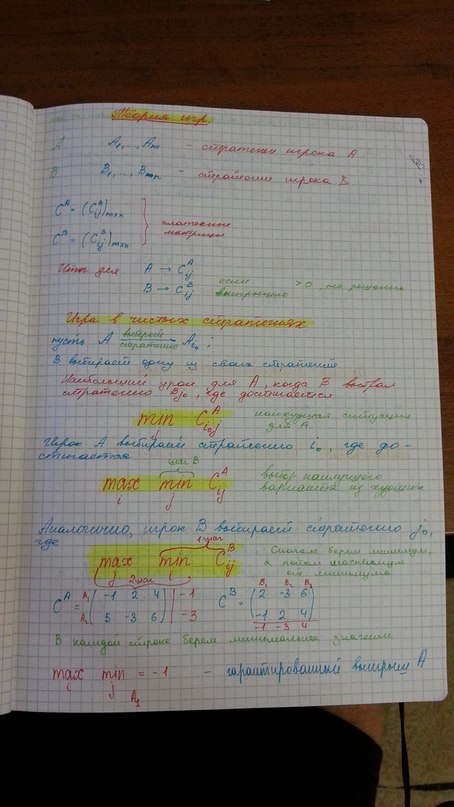 Теория игр
A A₁,...,Aₘ – стратегии игрока A
B B₁,...,Bₘₙ – стратегии игрока B
Cᴬ = (Cᴬᵢⱼ)ₘₓₙ
Cᴮ = (Cᴮᵢⱼ)ₘₓₙ } платежные матрицы
Итог для A → Cᴬᵢⱼ
B → Cᴮᵢⱼ если >0, то решение выигрышно
Игра в чистых стратегиях
пусть A выберет стратегию Aᵢ₀
B выбирает одну из своих стратегий
Наибольший урон для A, когда B выбрал
стратегию Bⱼ₀, где достигается
min Cᴬᵢ₀ⱼ наихудшая ситуация
j для A
Игрок A выбирает стратегию i₀, где до-
стигается
шаг B
max min Cᴬᵢⱼ выбор наилучшего
i j варианта из худших
Аналогично, игрок B выбирает стратегию j₀,
где
1 шаг
max min Cᴮᵢⱼ. Сначала берем минимум,
j i а потом максимум
2 шаг из минимума
B₁ B₂ B₃
Cᴬ = A₁ ( -1 2 4 | -1 Cᴮ = ( 2 -3 6 )
A₂ 5 -3 6 ) | -3 ( -1 2 4 )
-1 -3 4
В каждой строке берем минимальное значение
max min = -1 – гарантированный выигрыш A
i j A₁